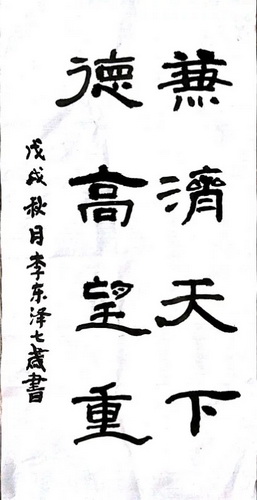 兼濟天下
德高望重
戊戌秋月李东泽七歲書